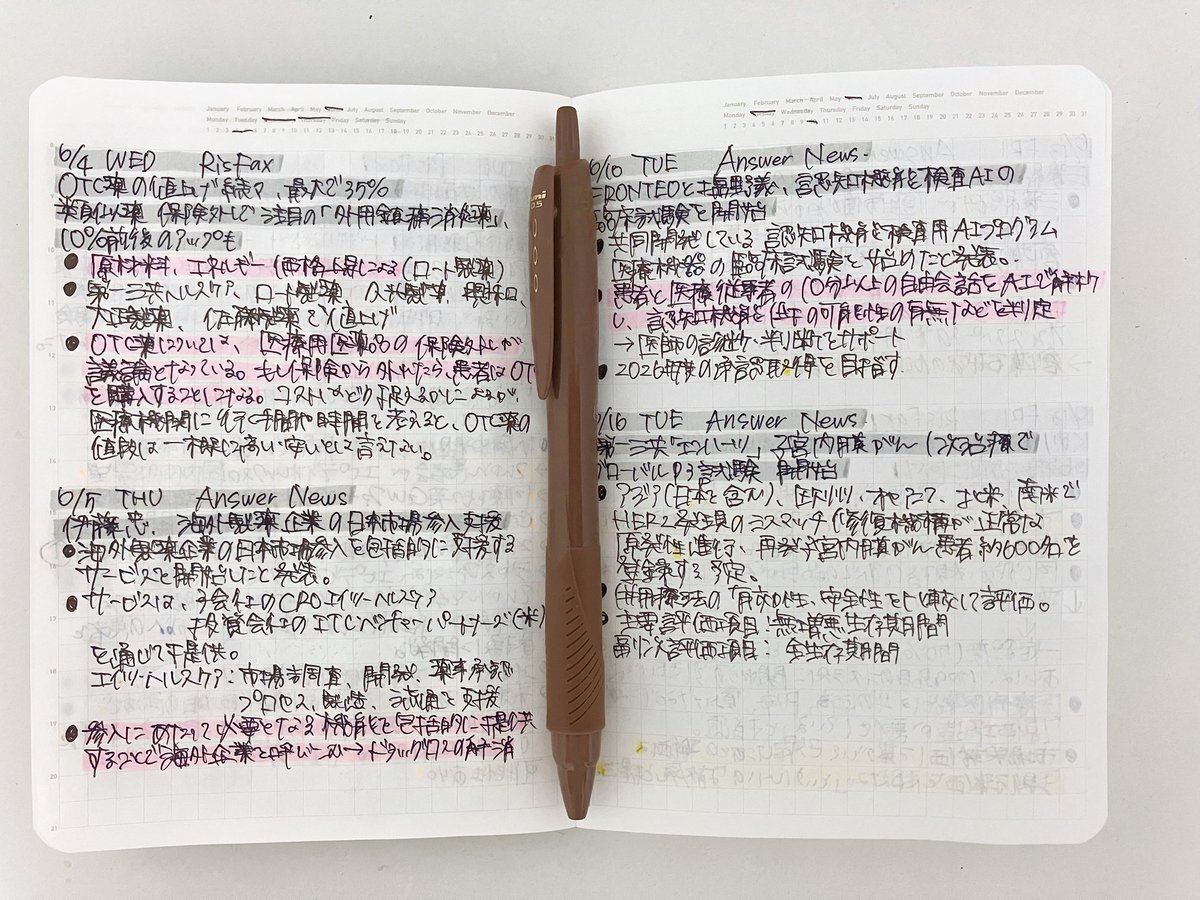 January February March April May July August September October November December
Monday Tuesday Thursday Friday Saturday Sunday
6/4 WED RisFax
OTC薬の値上げ続々、最大で35%
類似薬 保険外しで注目の「外用鎮痛消炎薬」、
10%前後のアップも
● 原材料、エネルギー価格上昇による(ロート製薬)
● 第一三共ヘルスケア、ロート製薬、久光製薬、興和、
大正製薬、佐藤製薬で値上げ
● OTC薬については、医療用医薬品の保険外しが
議論となっている。もし保険から外れたら、患者はOT
を購入することになる。コストをどう捉えるかによるが、
医療機関に行く手間や時間を考えると、OTC薬の
値段は一概に高い安いとは言えない。
6/5 THU Answer News
伊藤忠、海外製薬企業の日本市場参入支援
● 海外製薬企業の日本市場参入を包括的に支援する
サービスを開始したと発表。
● サービスは、子会社のCROエイツーヘルスケア
投資会社のITCベンチャーパートナーズ(米)
を通じて提供。
エイツーヘルスケア:市場調査、開発、薬事承認
プロセス、製造、流通を支援
● 参入にあたって必要となる機能を包括的に提供
することで海外企業を呼び込む→ドラッグロスの解消
uni
0.5
January February March April May July August September October November December
Monday Wednesday Thursday Friday Saturday Sunday
/10 TUE Answer News
FRONTEOと塩野義、認知機能検査AIの
臨床試験を開始
● 共同開発している認知機能検査用AIプログラム
医療機器の臨床試験を始めたと発表。
● 患者と医療従事者の10分以上の自由会話をAIで解析
し、認知機能低下の可能性の有無などを判定
→医師の診断・判断をサポート
● 2026年度の承認取得を目指す.
/10 TUE Answer News
第一三共「エンハーツ」子宮内膜がん1次治療で
グローバルP3試験 開始
● アジア(日本を含む)、欧州、オセアニア、北米、南米で
HER2発現のミスマッチ修復機構が正常な
原発性進行、再発子宮内膜がん患者約600名を
登録する予定。
● 併用療法の有効性、安全性を比較して評価。
● 主要評価項目:無増悪生存期間
副次評価項目:全生存期間